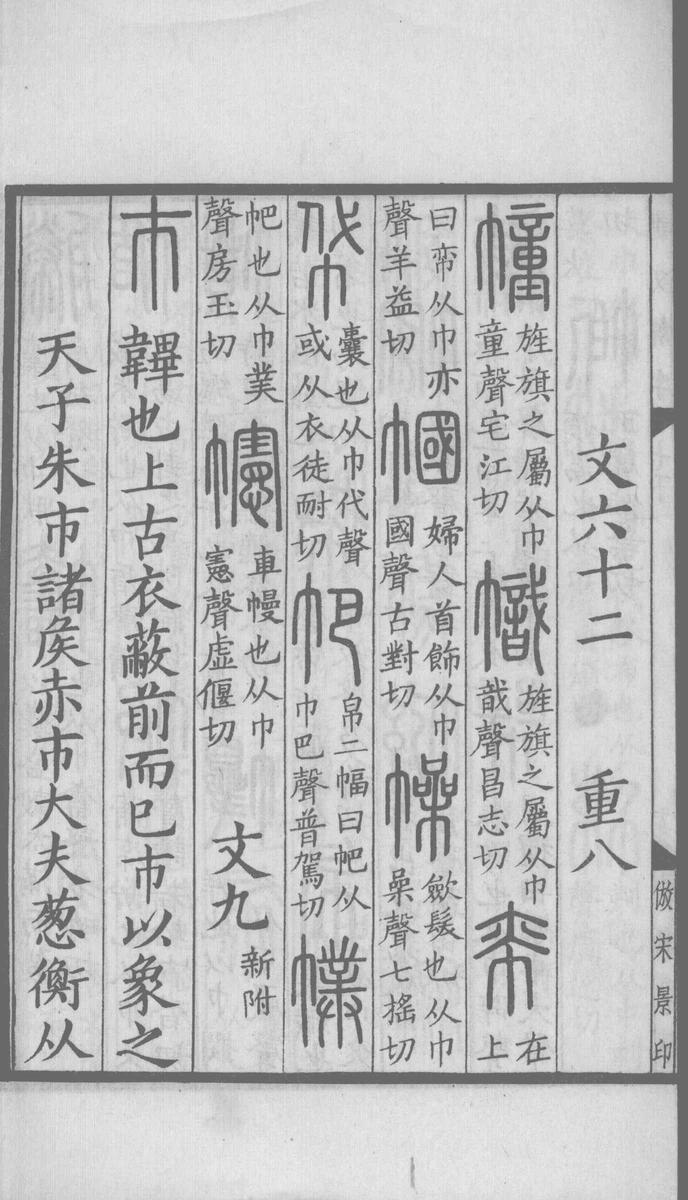 文六十二 重八
幢 旌旗之屬从巾童聲宅江切 幟 旌旗之屬从巾戠聲昌志切 帟 在上
曰帟从巾亦聲羊益切 幗 婦人首飾从巾國聲古對切 幧 歛髮也从巾喿聲七搖切
帒 囊也从巾代聲或从衣徒耐切 帊 帛二幅曰帊从巾巴聲普駕切 幞
帊也从巾菐聲房玉切 幰 車幔也从巾憲聲虛偃切 文九 新附
巿 韠也上古衣蔽前而已巿以象之
天子朱巿諸矦赤巿大夫葱衡从
倣宋景印